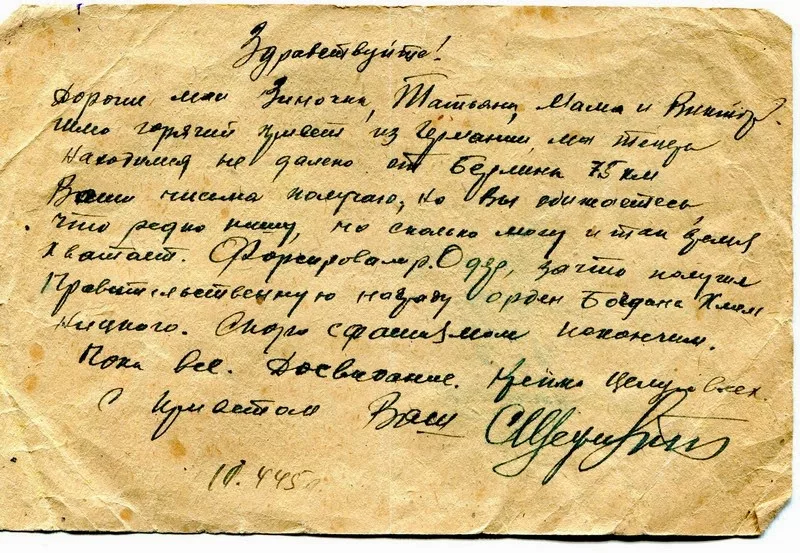 Здравствуйте!
Дороги мои Зиночка, Татьяна, Мама и Виктор.
Шлю горячий привет из Германии, мы теперь
находимся не далеко от Берлина 75 км
Ваши письма получаю, но Вы обижаетесь
что редко пишу, но сколько могу и так время
хватает. Форсировали р. Одер, за что получил
Правительственную награду орден Богдана Хмель
ницкого. Скоро с фашизмом покончим.
Пока все. Досвидание. Крепко целую всех.
С приветом Ваш
10.4.45г